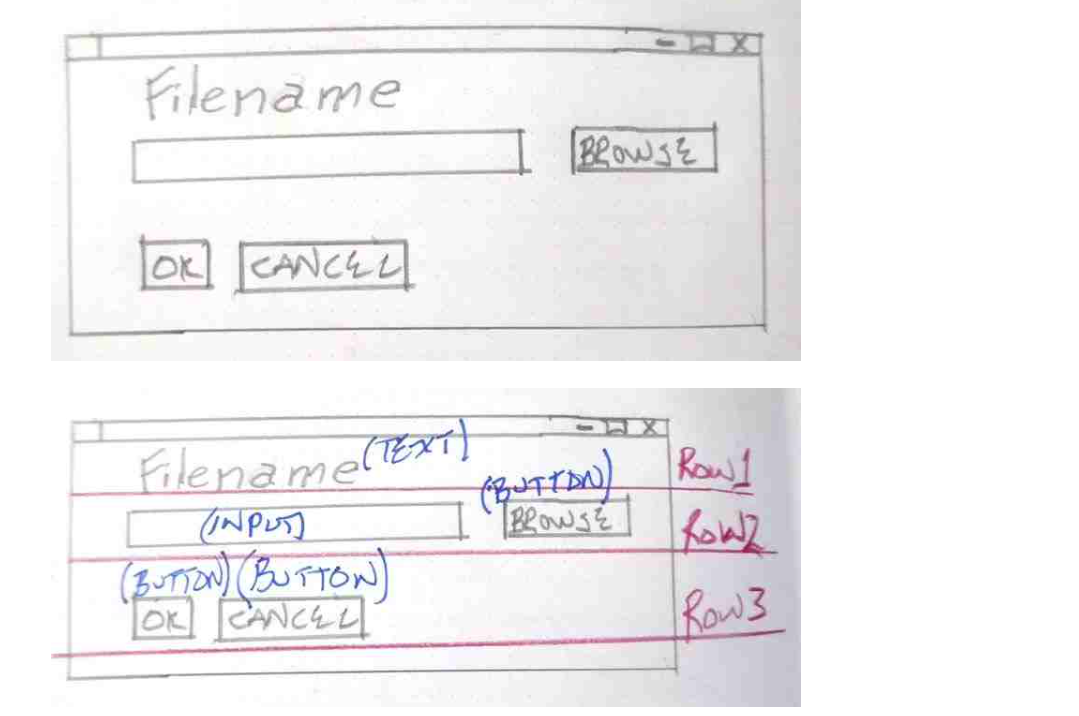 - X
Filename
BROWSE
OK CANCEL
- X
Filename (TEXT) Row1
(BUTTON)
(INPUT) BROWSE Row2
(BUTTON) (BUTTON)
OK CANCEL Row3